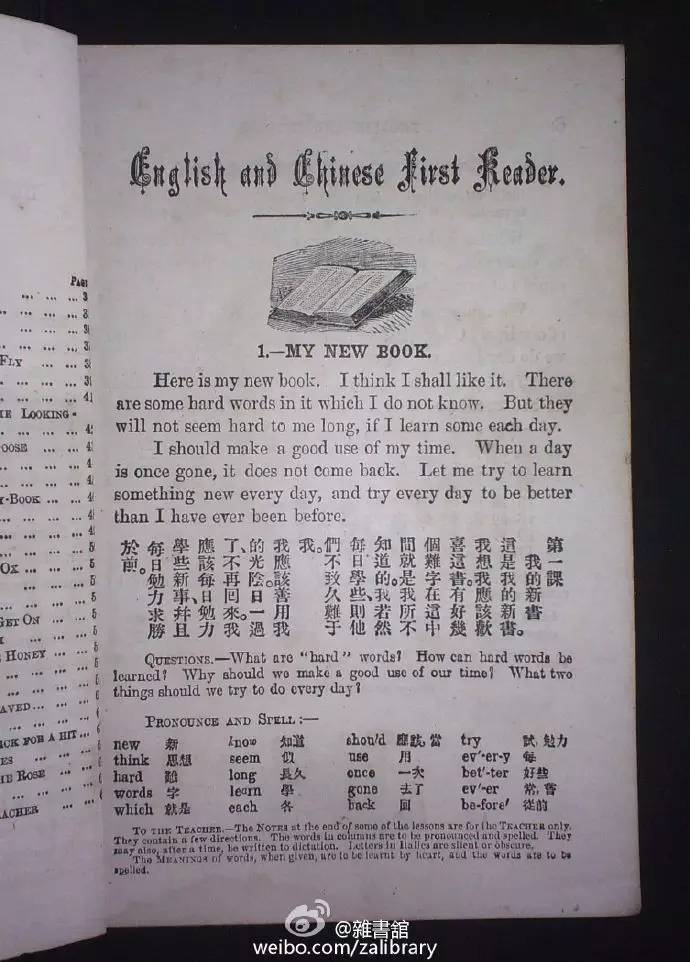 PAGE
FLY
LOOKING-
OOSE
Y-BOOK
OX
GET ON
HONEY
AVED
CK FOR A HIT
ES
HE ROSE
EACHER
English and Chinese First Reader.
1.—MY NEW BOOK.
Here is my new book. I think I shall like it. There
are some hard words in it which I do not know. But they
will not seem hard to me long, if I learn some each day.
I should make a good use of my time. When a day
is once gone, it does not come back. Let me try to learn
something new every day, and try every day to be better
than I have ever been before.
第一課
我的新書
這是我的新書。
我想我應該歡
喜書。有好幾
個難字在這中
間就是我所不
知道的。我若然
每日學些、則他
們不致久難于
我。
我應該善用我
的光陰。日一過
了、不再回來。我
應該每日勉力
學些新事、并且
每日勉力求勝
於前。
QUESTIONS.—What are "hard" words? How can hard words be
learned? Why should we make a good use of our time? What two
things should we try to do every day?
PRONOUNCE AND SPELL:—
new 新 know 知道 shou'd 應該,當 try 試,勉力
think 思想 seem 似 use 用 ev'-er-y 每
hard 難 long 長久 once 一次 bet'-ter 好些
words 字 learn 學 gone 去了 ev'-er 常,嘗
which 就是 each 各 back 回 be-fore' 從前
TO THE TEACHER.—The NOTES at the end of some of the lessons are for the TEACHER only.
They contain a few directions. The words in columns are to be pronounced and spelled. They
may also, after a time, be written to dictation. Letters in Italics are silent or obscure.
The MEANINGS of words, when given, are to be learnt by heart, and the words are to be
spelled.
@雜書館
weibo.com/zalibrary